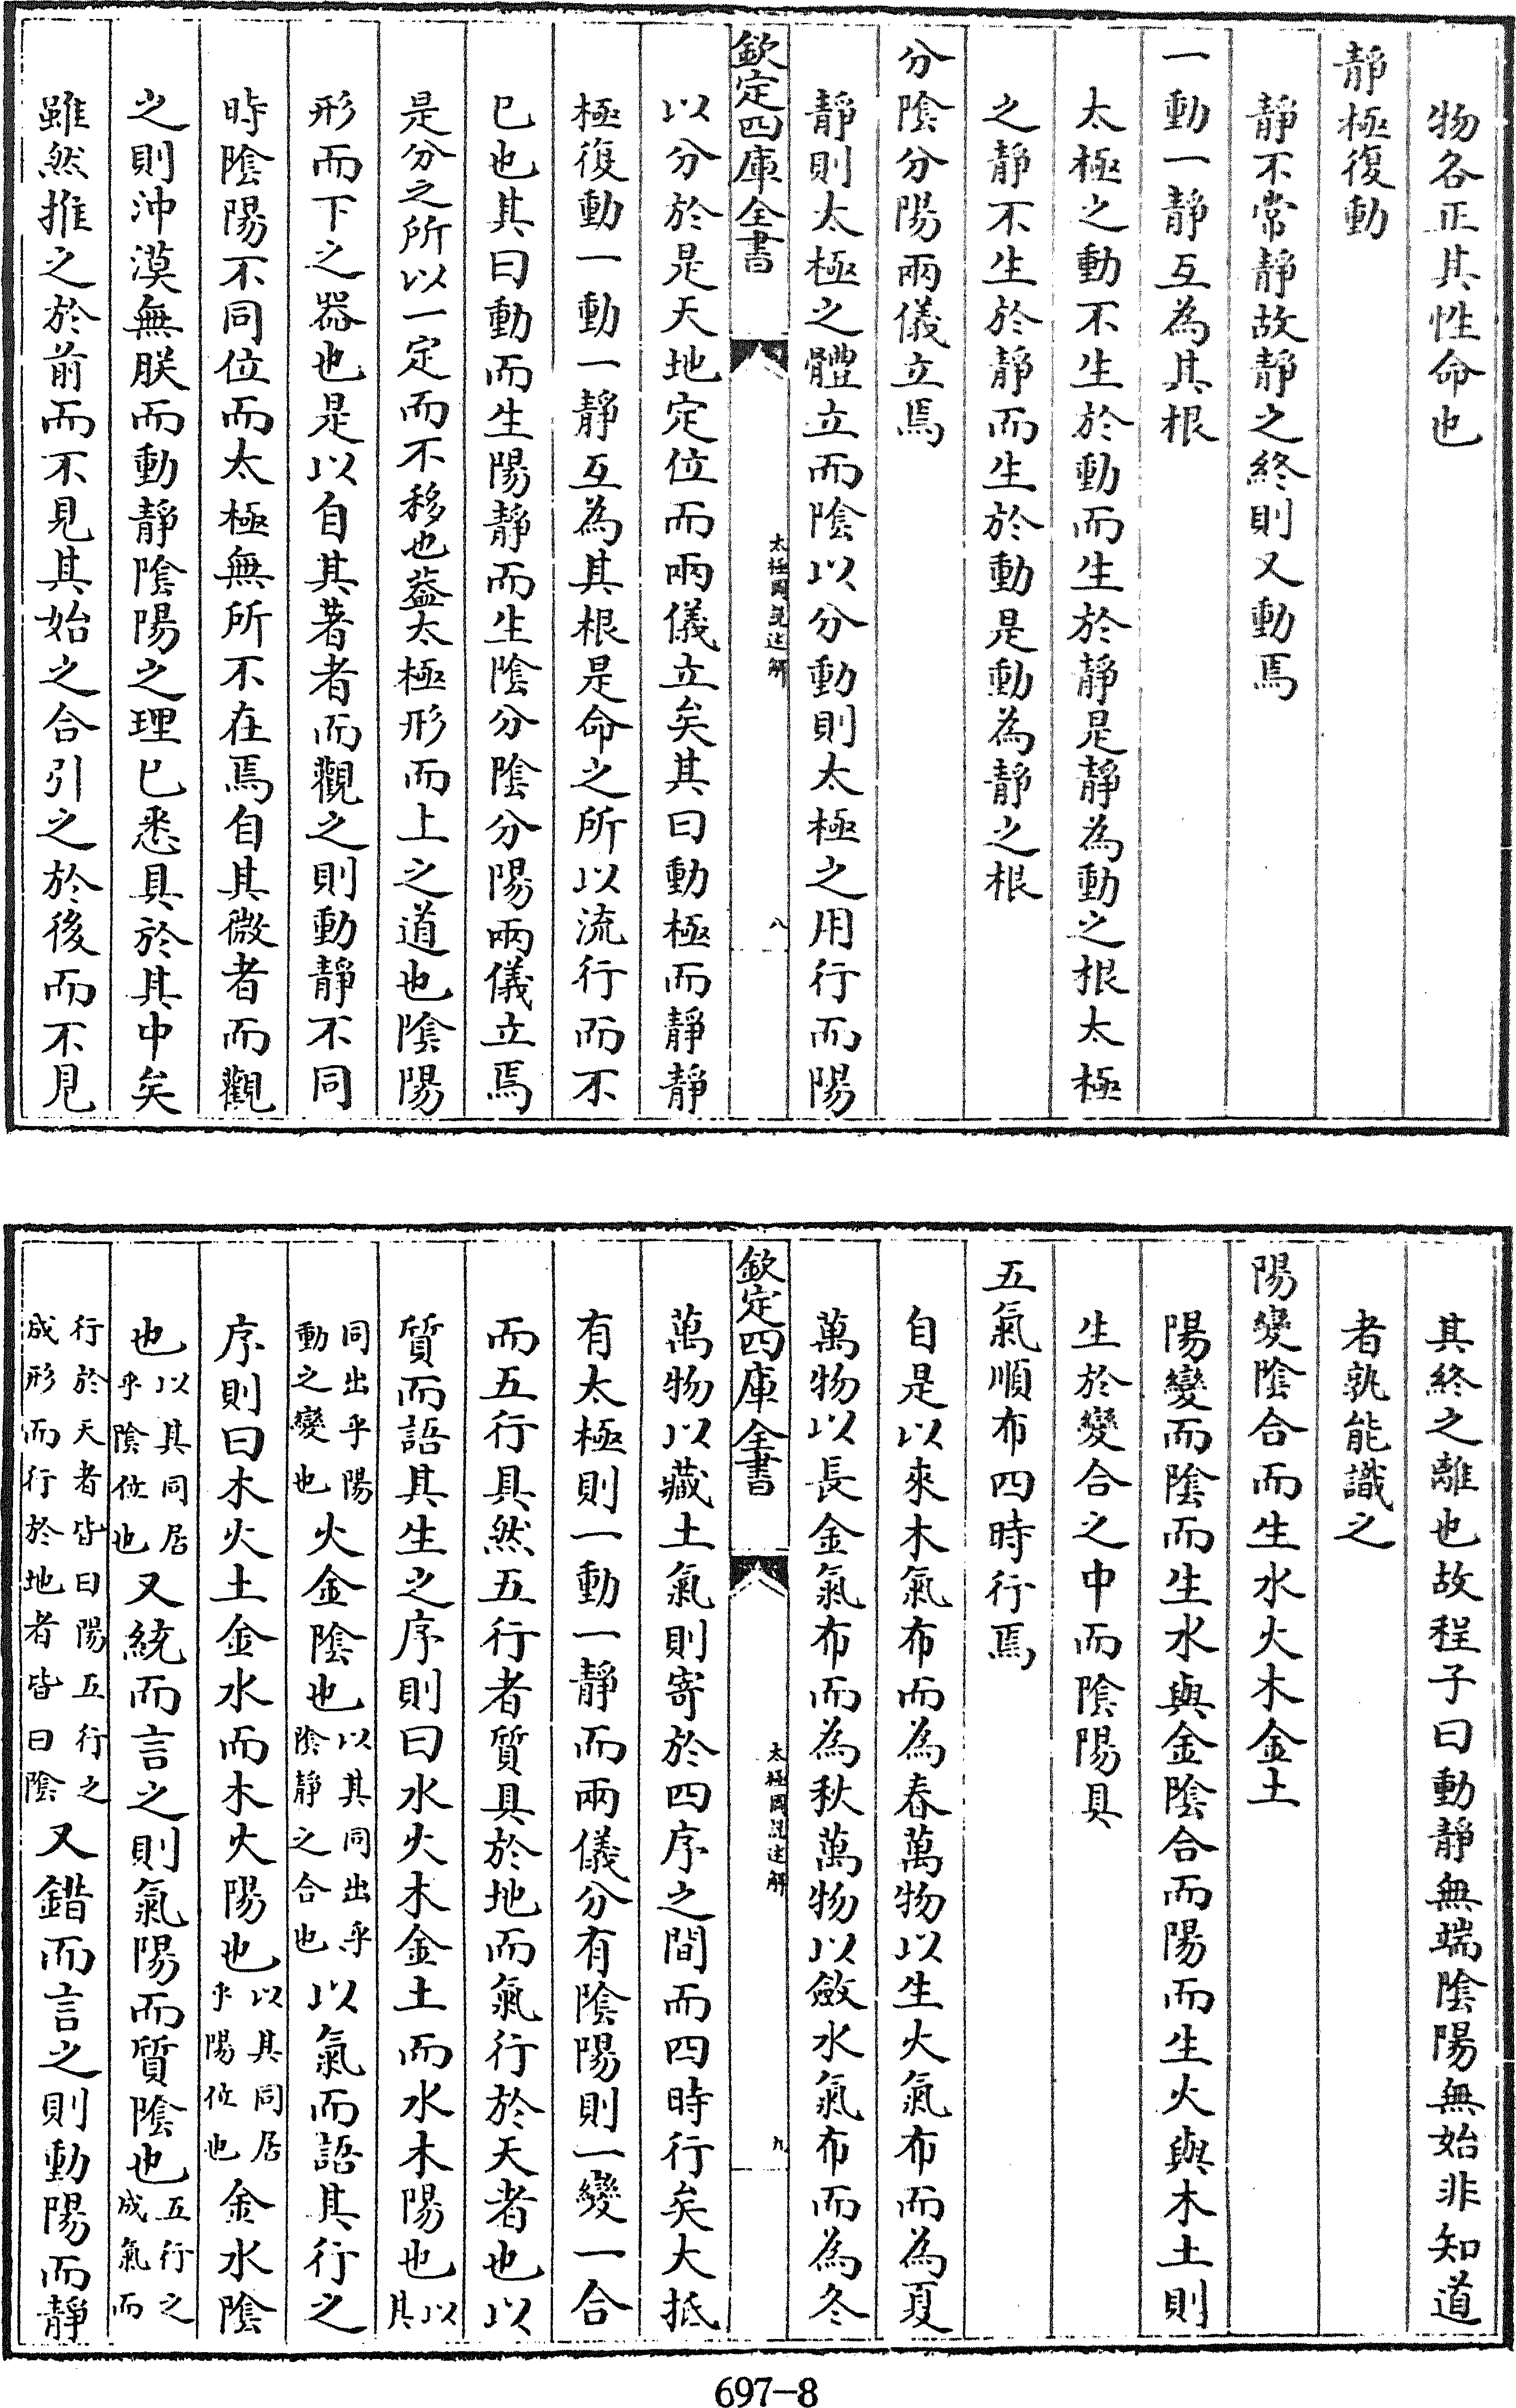 物各正其性命也
靜極復動
靜不常靜故靜之終則又動焉
一動一靜互為其根
太極之動不生於動而生於靜是靜為動之根太極
之靜不生於靜而生於動是動為靜之根
分陰分陽兩儀立焉
靜則太極之體立而陰以分動則太極之用行而陽
欽定四庫全書
太極圖說述解
八
以分於是天地定位而兩儀立矣其曰動極而靜靜
極復動一動一靜互為其根是命之所以流行而不
已也其曰動而生陽靜而生陰分陰分陽兩儀立焉
是分之所以一定而不移也葢太極形而上之道也陰陽
形而下之器也是以自其著者而觀之則動靜不同
時陰陽不同位而太極無所不在焉自其微者而觀
之則沖漠無朕而動靜陰陽之理已悉具於其中矣
雖然推之於前而不見其始之合引之於後而不見
其終之離也故程子曰動靜無端陰陽無始非知道
者孰能識之
陽變陰合而生水火木金土
陽變而陰而生水與金陰合而陽而生火與木土則
生於變合之中而陰陽具
五氣順布四時行焉
自是以來木氣布而為春萬物以生火氣布而為夏
萬物以長金氣布而為秋萬物以斂水氣布而為冬
欽定四庫全書
太極圖說述解
九
萬物以藏土氣則寄於四序之間而四時行矣大抵
有太極則一動一靜而兩儀分有陰陽則一變一合
而五行具然五行者質具於地而氣行於天者也以
質而語其生之序則曰水火木金土而水木陽也以其
同出乎陽動之變也火金陰也以其同出乎陰靜之合也以氣而語其行之
序則曰木火土金水而木火陽也以其同居乎陽位也金水陰
也以其同居乎陰位也又統而言之則氣陽而質陰也五行之成氣而
行於天者皆曰陽五行之成形而行於地者皆曰陰又錯而言之則動陽而靜
697-8